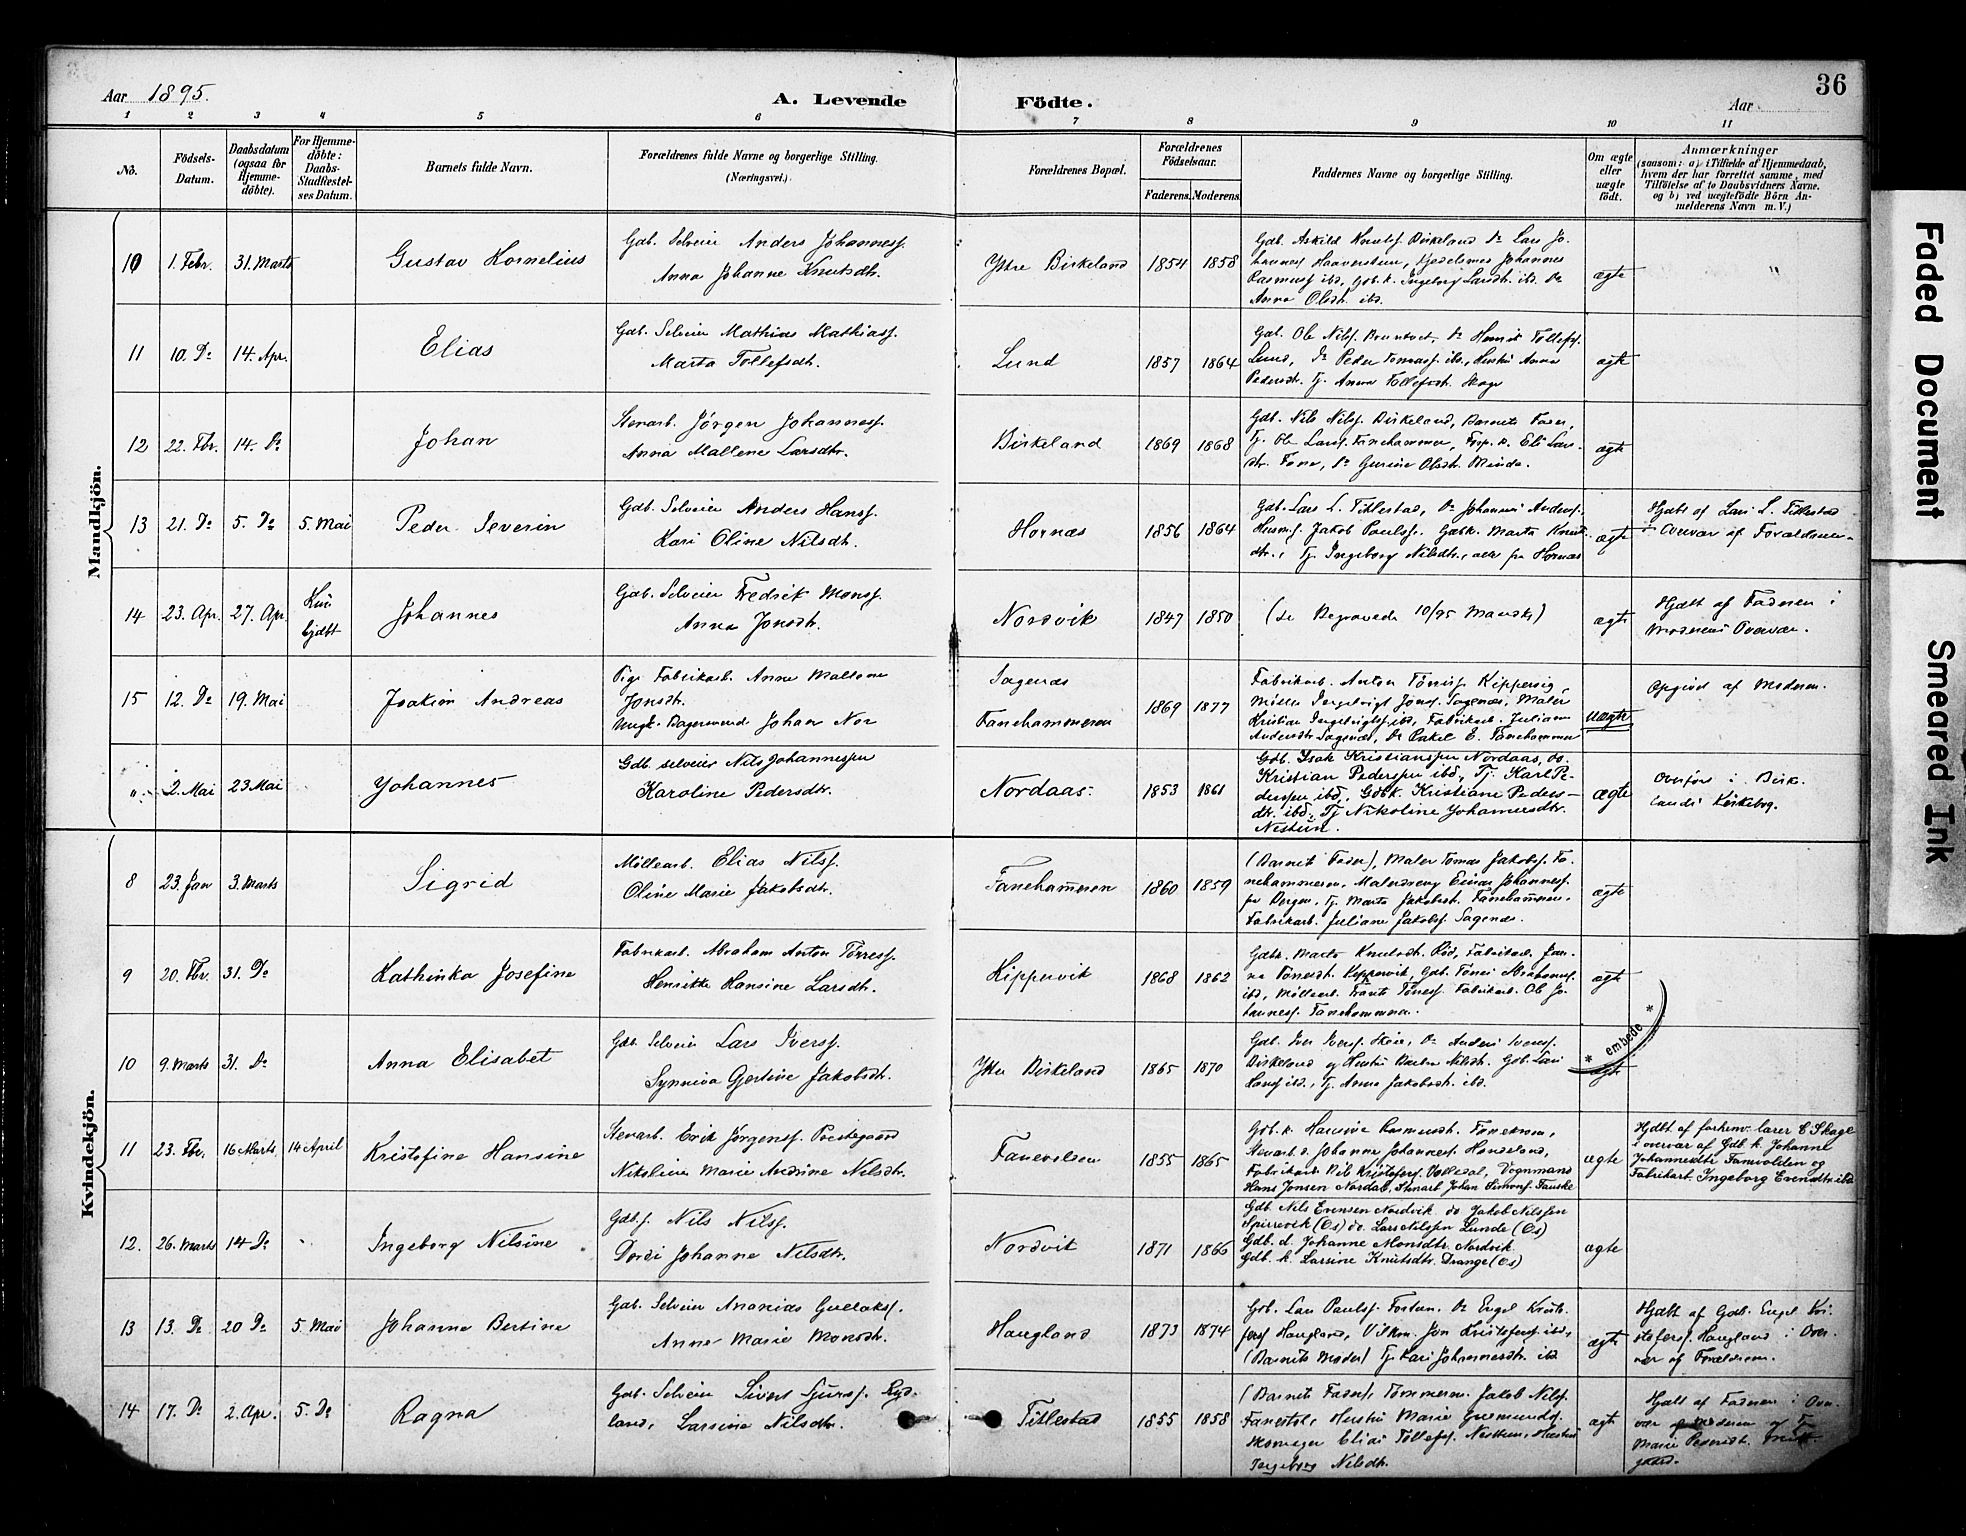 36
Aar 1895.
A. Levende
Födte.
Aar
1 2 3 4 5 6 7 8 9 10 11
No.
Födsels-
Datum.
Daabsdatum
(ogsaa for
Hjemme-
döbte).
For Hjemme-
döbte:
Daabs-
Stadfæstel-
ses Datum.
Barnets fulde Navn.
Forældrenes fulde Navne og borgerlige Stilling.
(Næringsvei.)
Forældrenes Bopæl.
Forældrenes
Födselsaar.
Faderens. Moderens.
Faddernes Navne og borgerlige Stilling.
Om ægte
eller
uægte
födt.
Anmærkninger
(saasom: a) i Tilfælde af Hjemmedaab,
hvem der har forrettet samme, med
Tilföielse af to Daabsvidners Navne.
og b) ved uægtefödte Börn An-
melderens Navn m. V.)
Mandkjön.
10 1. Febr. 31. Marts
Gustav Kornelius
Gdb. Selveier Anders Johannesf.
Anna Johanne Knutsdtr.
Ytre Birkeland 1854 1858
Gdb. Askild Knutsf. Birkeland Do Lars Jo-
Rasmusf ibd, Gdb. k. Ingeborg Larsdtr. ibd. Do
Anna Olsdtr. ibd.
ægte
"
11 10. Do 14. Apr.
Elias
Gdb. Selveier Mathias Mathiasf.
Marta Tollefsdtr.
Lund 1857 1864
Gdb. Ole Nilsf. Do Tollefsf.
Lund, Do Peder Tomasf ibd., Hustru Anna
Pedersdtr. Tj. Anna Tollefsdtr. Skage
ægte
12 22. Fbr. 14. Do
Johan
Stenarb. Jörgen Johannesf.
Anna Mallene Larsdtr.
Birkeland 1869 1868
Gdb. Nils Nilsf. Birkeland, Barnets Fader,
Tj. Ole Larsf. Fanehammer, Eli Lars-
dtr. Fana, Do Gurine Olsdtr. Minde.
ægte
13 21. Do 5. Do 5. Mai
Peder Severin
Gdb. Selveier Anders Hansf.
Kari Oline Nilsdtr.
Hornæs 1856 1864
Gdb. Lars L. Titlestad, Do Johannes Andersf.
Husm. Jakob Paulsf. Gdbk. Marta Knut-
dtr., Tj. Ingeborg Nilsdtr., alle fra Hornæs
ægte
Hjdbt af Lars L. Titlestad
i Overvær af Forældrene.
14 23. Apr. 27. Apr. Kun
hjdbt
Johannes
Gdb. Selveier Fredrik Monsf.
Anna Jonsdtr.
Nordvik 1847 1850
(se Begravede 10/95 Mandk)
ægte
Hjdbt af Faderen i
Moderens Overvær.
15 12. Do 19. Mai
Joakim Andreas
Pige Fabrikarb. Anna Mallene
Jonsdtr.
Ungk. Bagersvend Johan Nor
Sagenæs
Fanehammeren
1869 1877
Fabrikarb. Anton Tönnesf. Kippersvig,
Möller Ingebrigt Jonsf. Sagenæs, Maler
Kristian Ingebrigtsf. ibd, Fabrikarb. Juliane
Andersdtr. Sagenæs, Do Rakel E. Fanehammer
uægte
Opgivet af Moderen.
". 2. Mai 23 Mai
Johannes
Gdb. selveier Nils Johannessen
Karoline Pedersdtr.
Nordaas. 1853 1861
Gdb. Isak Kristianssen Nordaas, do.
Kristian Pederssen ibd, Tj. Karl Pe-
derssen ibd, Gdbk. Kristiane Peders-
dtr. ibd, Tj Nikoline Johannesdtr.
Nestun.
ægte
Overført i Birke-
lands Kirkebog.
Kvindekjön.
8 23. Jan 3. Marts
Sigrid
Møllearb. Elias Nilsf.
Oline Marie Jakobsdtr.
Fanehammeren 1860 1859
(Barnets Fader), Maler Tomas Jakobsf. Fa-
nehammeren, Malerdreng Einar Johannesf.
fra Bergen, Tj. Marta Jakobsdtr. Fanehammeren.
Fabrikarb. Juliane Jakobsf. Sagenæs.
ægte
9 20. Fbr. 31. Do
Kathinka Josefine
Fabrikarb. Abraham Anton Tönnesf.
Henrikke Hansine Larsdtr.
Kippervik 1868 1862
Gdbk. Marta Knutsdtr. Rød, Fabrikarb. Jan-
na Tönnesdtr. Kippervik, Gdb. Tönnes Abrahamsf.
ibd, Møllearb. Frants Tönnesf. Fabrikarb. Ole Jo-
hannesf. Fanehammeren.
ægte
* embede *
10 9. Marts 31. Do
Anna Elisabet
Gdb. Selveier Lars Iversf.
Synneva Gjertine Jakobsdtr.
Ytre Birkeland 1865 1870
Gdb. Iver Iversf. Skeie, Do Anders Iversf.
Birkeland og Hustru Nilsdtr. Gdb. Lars
Larsf ibd., Tj. Anna Jakobsdtr. ibd.
ægte
11 23. Fbr. 16 Marts 14 April
Kristofine Hansine
Stenarb. Erik Jörgensf. Prestegaard
Nikoline Marie Andrine Nilsdtr.
Fanevolden 1855 1865
Gdb. k. Hansine Rasmusdtr. Fanevolden,
Stenarb. d. Johanne Johannesf.
Fabrikarb. Nils Kristofersf. Vognmand
Hans Jonsen Nordal, Stenarb Johan Simonsf. Fauske
ægte
Hjdbt. af forhenv. lærer E Skage
i overvær af Gdb. k. Johanne
Johannesdtr Fanevolden og
Fabrikarb. Ingeborg Evensdtr ibd
12. 26. Marts 14 Do
Ingeborg Nilsine
Gdb. f. Nils Nilsf.
Dordi Johanne Nilsdtr.
Nordvik 1871 1866
Gdb. Nils Evensen Nordvik do Jakob Nilssen
Spirrevik (Os) do. Lars Nilssen Lunde (Os)
Gdb. d. Johanne Monsdtr. Nordvik.
Gdb. k. Larsine Knutsdtr. Drange (Os)
ægte
13 13. Do 20 Do 5. Mai
Johanne Bertine
Gdb. Selveier Ananias Gullaksf.
Anna Marie Monsdtr.
Haugland 1873 1874
Gdb. Lars Paulsf. Fortun, Do Engel Krist-
fersf Haugland, Jon Kristofersf. ibd.,
(Barnets Moder) Tj. Kari Johannesdtr. ibd
ægte
Hjdbt af Gdb. Engel Kri-
stofersf. Haugland i Over-
vær af Forældrene.
14 17. Do 2. Apr. 5. Do
Ragna
Gdb. Selveier Sivert Sjursf. Ryd-
land, Larsine Nilsdtr.
Titlestad 1855 1858
(Barnets Fader), Tömmerm. Jakob Nilsf.
Fanestöl, Hustru Marie
Skomager Elias Tollefsf. Nesttun, Hustru
Ingeborg Nilsdtr.
ægte
Hjdbt af Faderen i Over-
vær af Moderen og Tj.
Marie Pedersdtr.
gaard.
Faded Document
Smeared Ink